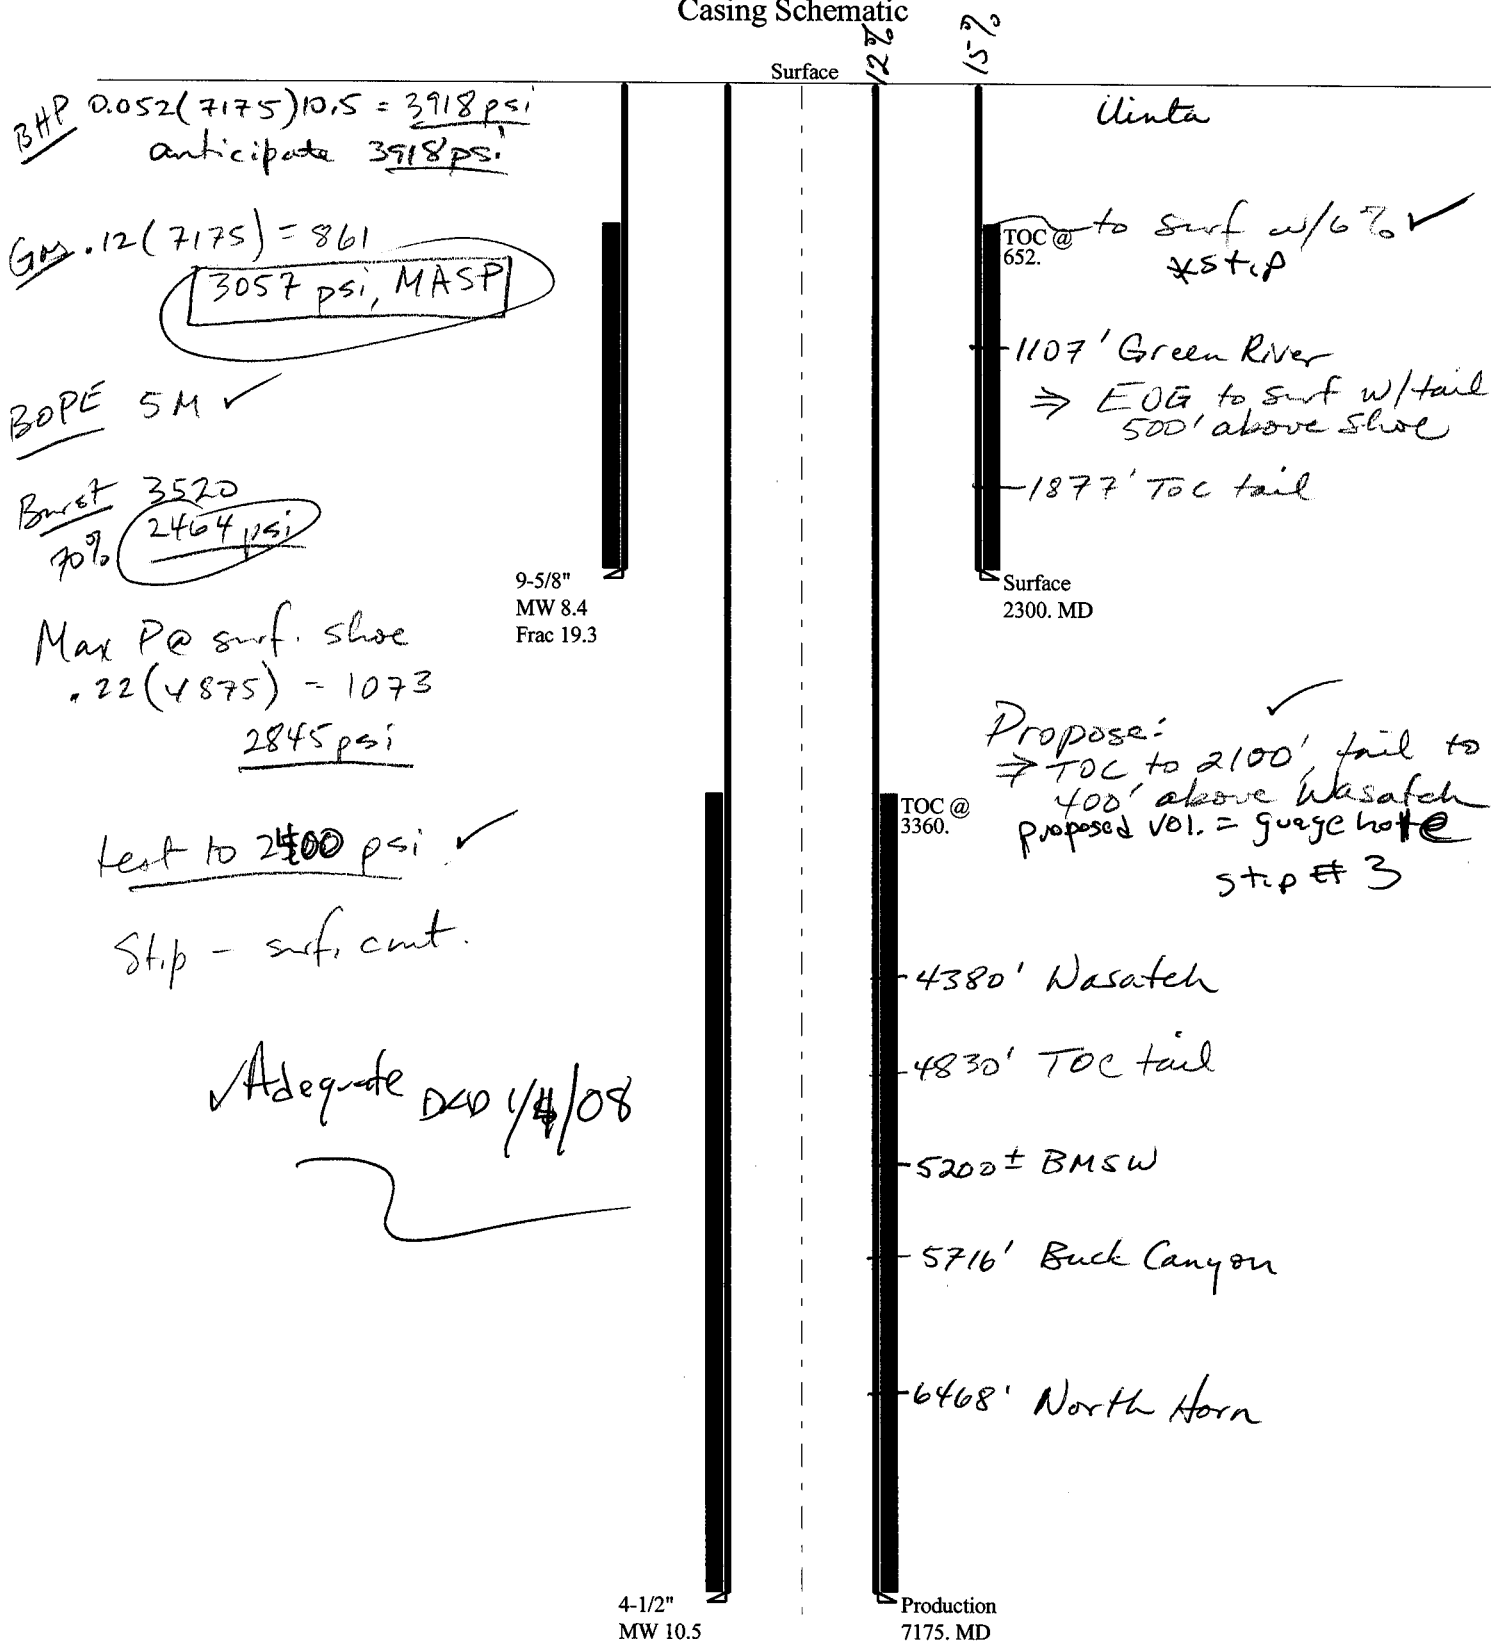 Casing Schematic
12%
15%
Surface
BHP 0.052(7175)10.5 = 3918 psi
anticipate 3918 psi
Gas .12(7175) = 861
3057 psi, MASP
BOPE 5M ✓
Burst 3520
70% 2464 psi
9-5/8"
MW 8.4
Frac 19.3
Max P@ surf. shoe
.22(4875) = 1073
2845 psi
test to 2400 psi ✓
Stip - surf. cmt.
✓ Adequate DKD 1/4/08
4-1/2"
MW 10.5
Uinta
TOC @
652.
to surf w/6% ✓
*stip
1107' Green River
⇒ EOG to surf w/tail
500' above shoe
1877' TOC tail
Surface
2300. MD
Propose: ✓
⇒ TOC to 2100', tail to
400' above Wasatch
proposed vol. = guage hole
stip # 3
TOC @
3360.
4380' Wasatch
4830' TOC tail
5200± BMSW
5716' Buck Canyon
6468' North Horn
Production
7175. MD